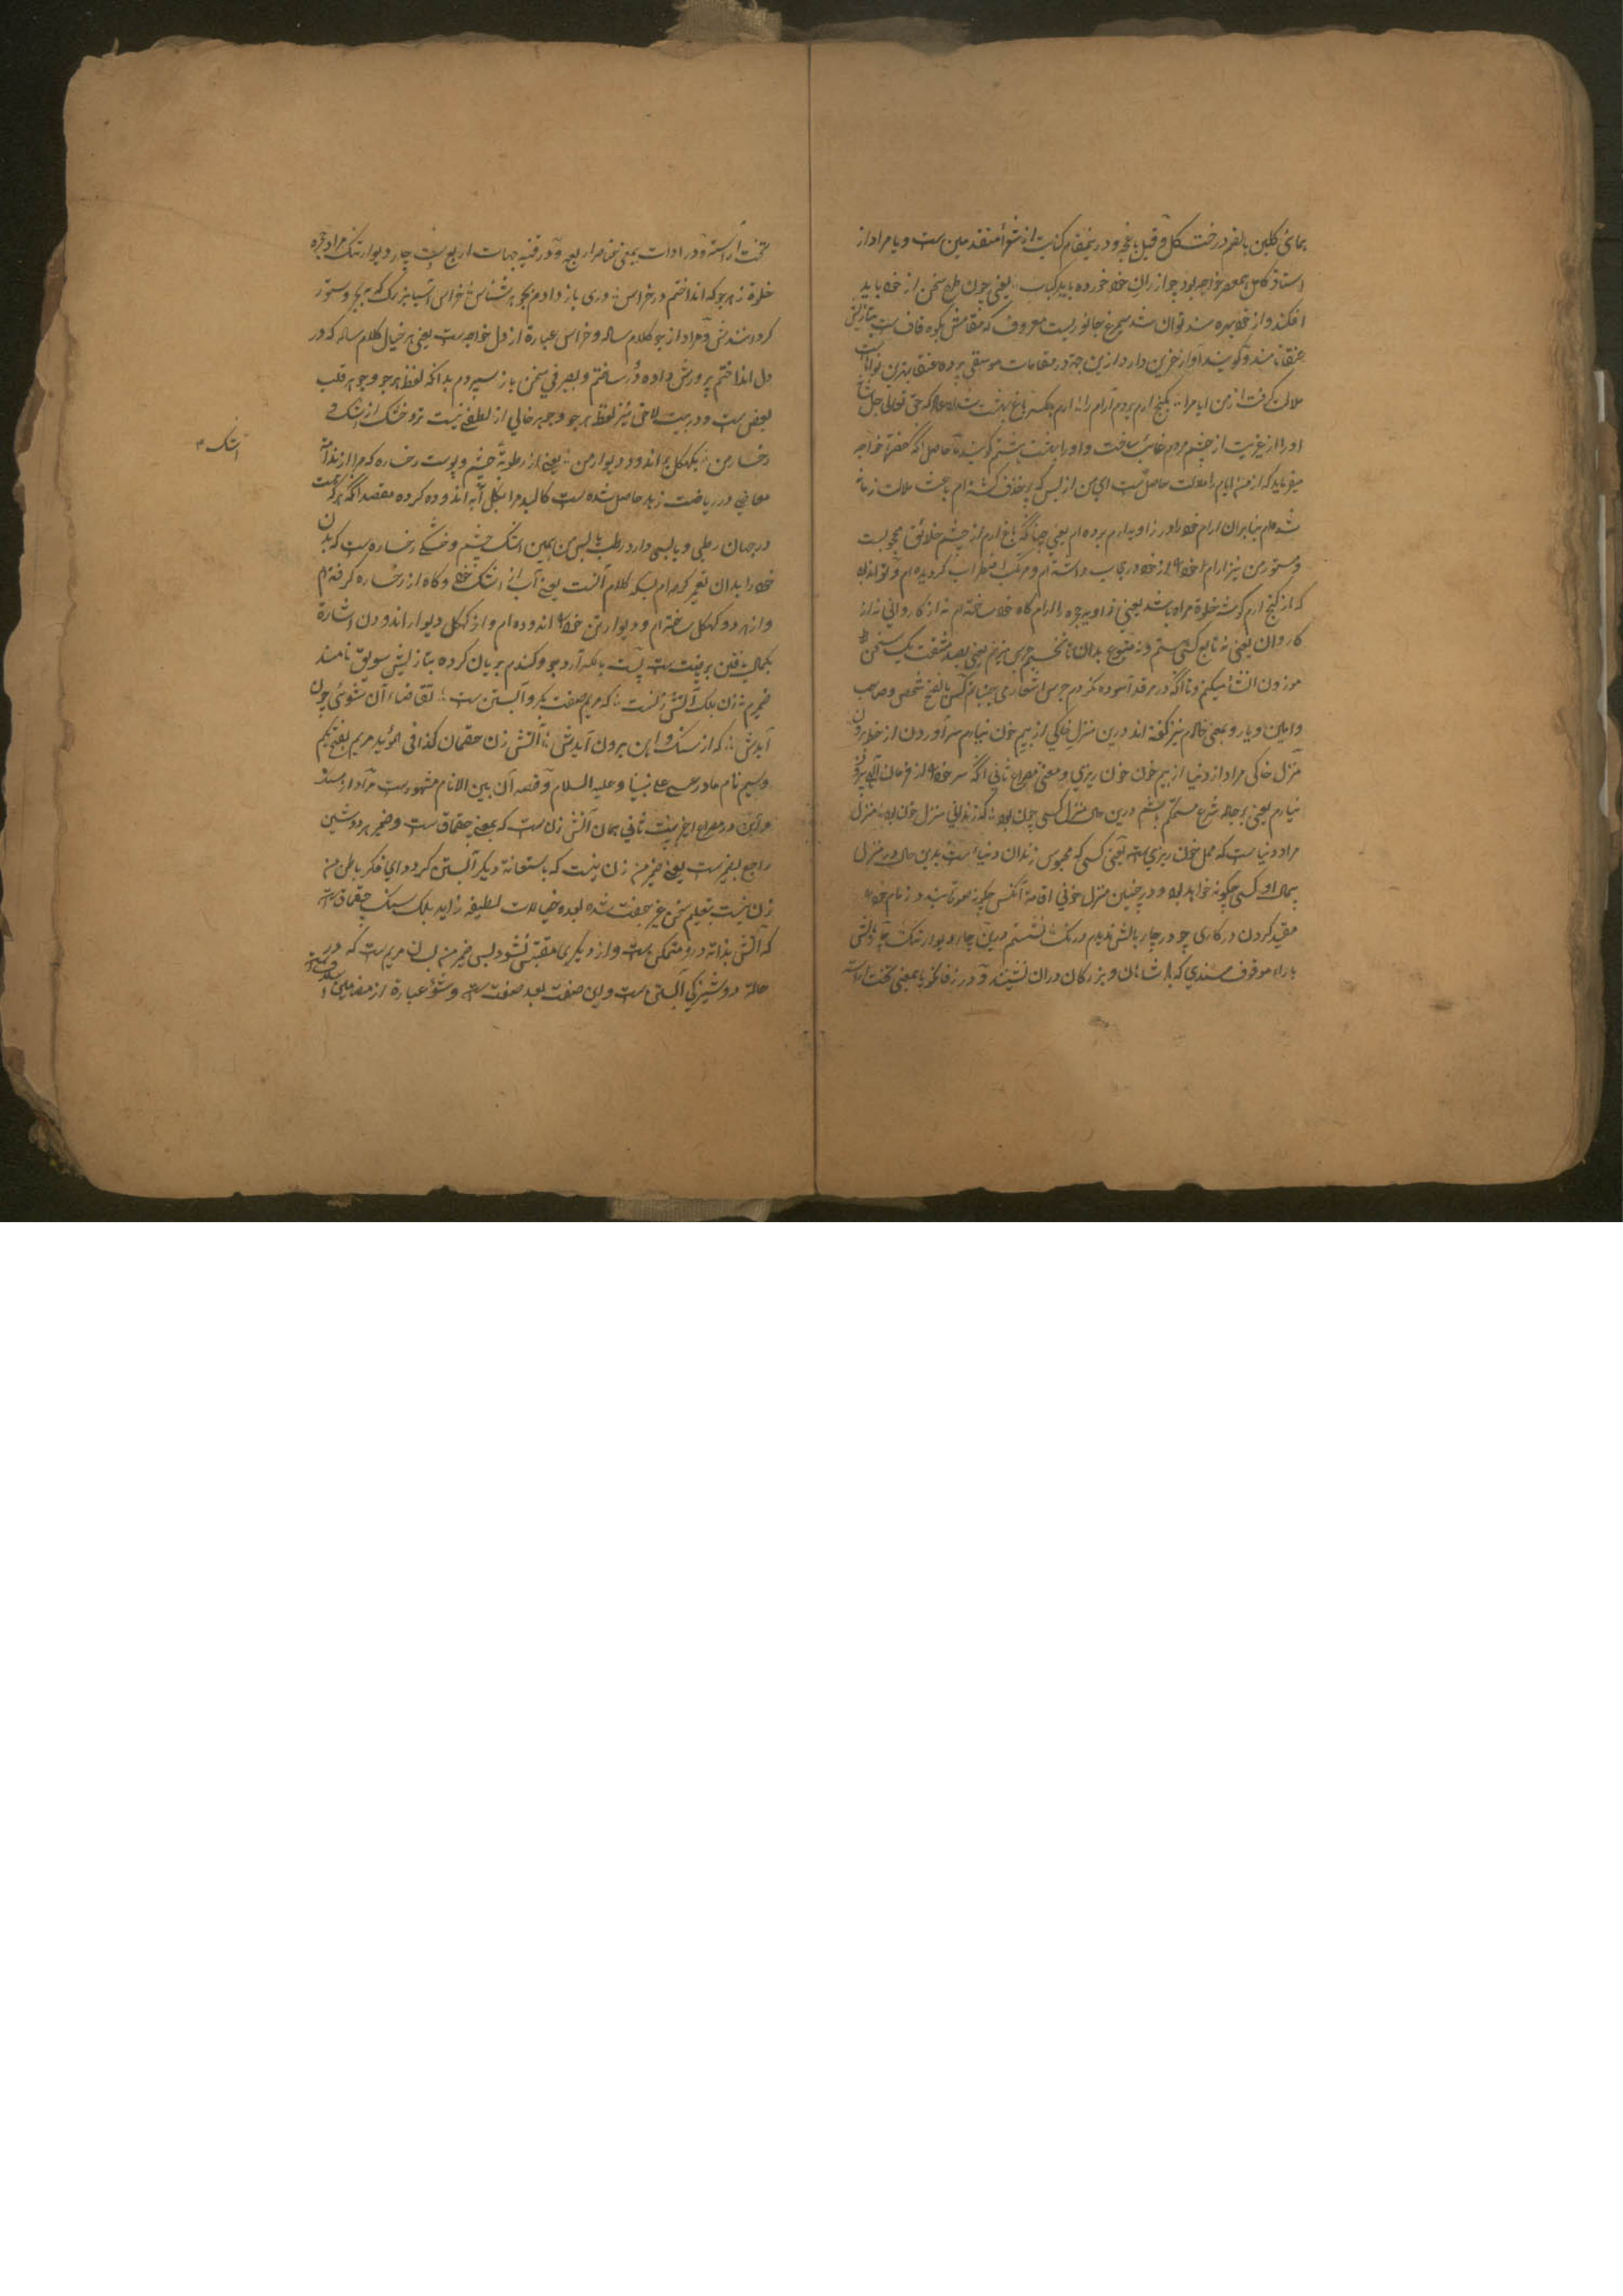 بمای گلبن بالضم درخت گل و قیل باغچه و درینمقام کنایت از شعراء متقدمین ست و یا مراد از
استاد کامل بمعصر خواجه بود چو از ران خود خورده باید کباب یعنی چون طرح سخن از خود باید
افکند و از خود بهره مند توان شد سیمرغ جانوریست معروف که مقامش بکوه قاف ست بتازیش
عنقا نامند و گویند آواز حزین دارد ازین جهة در مقامات موسیقی پرده عنقا بهترین نواهاست
ملالت گرفت از من ایام را بکنج ارم بردم آرام را ارم بکسر باغ بهشت شداد عاد که حق تعالی جل شانه
او را از غیرت از چشم مردم غائب ساخت و او را بهشت هشتم گویند حاصل آنکه حضرة خواجه
میفرماید که از من ایام را ملالت حاصل ست ای من از بس که پر خذف گشته ام باعث ملالت زمانه
شده ام بنابران آرام خود را در زاویه ارم برده ام یعنی چنانکه باغ ارم از چشم خلائق محجوبست
و مستور من نیز آرام خود را از خود در حجاب داشته ام و مرتکب اضطراب گردیده ام و تواند بود
که از کنج ارم گوشه خلوة مراد باشد یعنی زاویه حجره را آرام گاه خود ساخته ام نه از کاروانی نه از
کاروان یعنی نه تابع کسی هستم و نه متبوع بدان تا نخسپم جرس میزنم یعنی بصد مشقت یک سخن
موزون انشا میکنم و تا آنکه در مرقد آسوده نگردم جرس اشعار می جنبانم کس بالفتح شخص و صاحب
و امین و یار و بمعنی خادم نیز گفته اند درین منزل خاکی از بیم خون نیارم سر آوردن از خط برون
منزل خاکی مراد از دنیا از بیم خون خون ریزی و معنی مصراع ثانی آنکه سر خود را از فرمان الهی بیرون
نیارم یعنی بر جاده شرع مستحکم باشم درین حال منزل کسی چون بود که زندانی منزل خون بود منزل
مراد دنیا ست که محل خون ریزی ست یعنی کسی که محبوس زندان دنیا است بدین حال در منزل
بحال او کسی چگونه خواهد بود و در چنین منزل خونی اقامة آنکس چگونه صورة بندد زمام خود
مقید کردن در کاری چو در چار بالش ندیدم درنگ نشستم درین چار دیوار تنگ چار بالش
با راء موقوف مسندی که پادشاهان و بزرگان دران نشینند و در زفانگویا بمعنی تخت آراسته
تخت آراسته و در ادات بمعنی عناصر اربع و در قنیه جهات اربع است چار دیوار تنگ مراد حجره
خلوة ز هر جو که انداختم در خراس دری باز دادم بجوهرشناس خراس آسیا بزرگ که بخر و ستور
گردانندش و مراد از جو کلام ساله و خراس عبارة از دل خواجه ست یعنی هر خیال کلام ساله که در
دل انداختم پرورش داده در ساختم و بصیرفی سخن باز سپردم بدانکه لفظ هر جو و جوهر قلب
بعض ست و در بیت لاحق نیز لفظ هر جو و جوهر خالی از لطف نیست تر و خشک از اشک و
رخسار من بکهگل بر اندود دیوار من یعنی از رطوبة چشم و پوست رخساره که مرا از ندامت
معاصی در ریاضت زهد حاصل شده ست کالبد مرا بکل آنه اندوده کرده مقصد آنکه هر که هست
در جهان رطبی و یابسی دارد رطب یابس من همین اشک چشم و خشکی رخساره ست که بدن
خود را بدان تعمیر کرده ام بلکه کلام آنست یعنی آب از اشک خود و کاه از رخساره گرفته ام
و از هر دو کهگل ساخته ام و دیوار تن خود را اندوده ام و از کهگل دیوار اندودن اشارة
بکمال یقین بر نیت ست پست بالکسر آرد جو و گندم بریان کرده بتازیش سویق نامند
ضمیرم نه زن بلک آتش زنست که مریم صفت بکر و آبستن ست تقاضاء آن شوی چون
آیدش که از سنگ و آهن برون آیدش آتش زن چقمان کذا فی المؤید مریم بفتح یکم
و سیم نام مادر عیسی علی نبینا و علیه السلام و قصه آن بین الانام مشهور ست مراد از سنگ
و آهن در مصراع اخیر بیت ثانی همان آتش زن ست که بمعنی چقماق ست و ضمیر هر دو شین
راجع بضمیر ست یعنی ضمیر من زن نیست که باستعانة دیگر آبستن گردد ای فکر باطن من
زن نیست بتعلیم سخن غیر جفت شده بعده خیالات لطیفه زاید بلک سنگ چقماق ست
که آتش بذاته درو متمکن ست و از دیگری مقتبس نشود بس ضمیر من بسان مریم ست که در
حالة دوشیزگی آبستن ست و این صفت بعید صفت ست و شوی عبارة از مضامین
اشک ۳